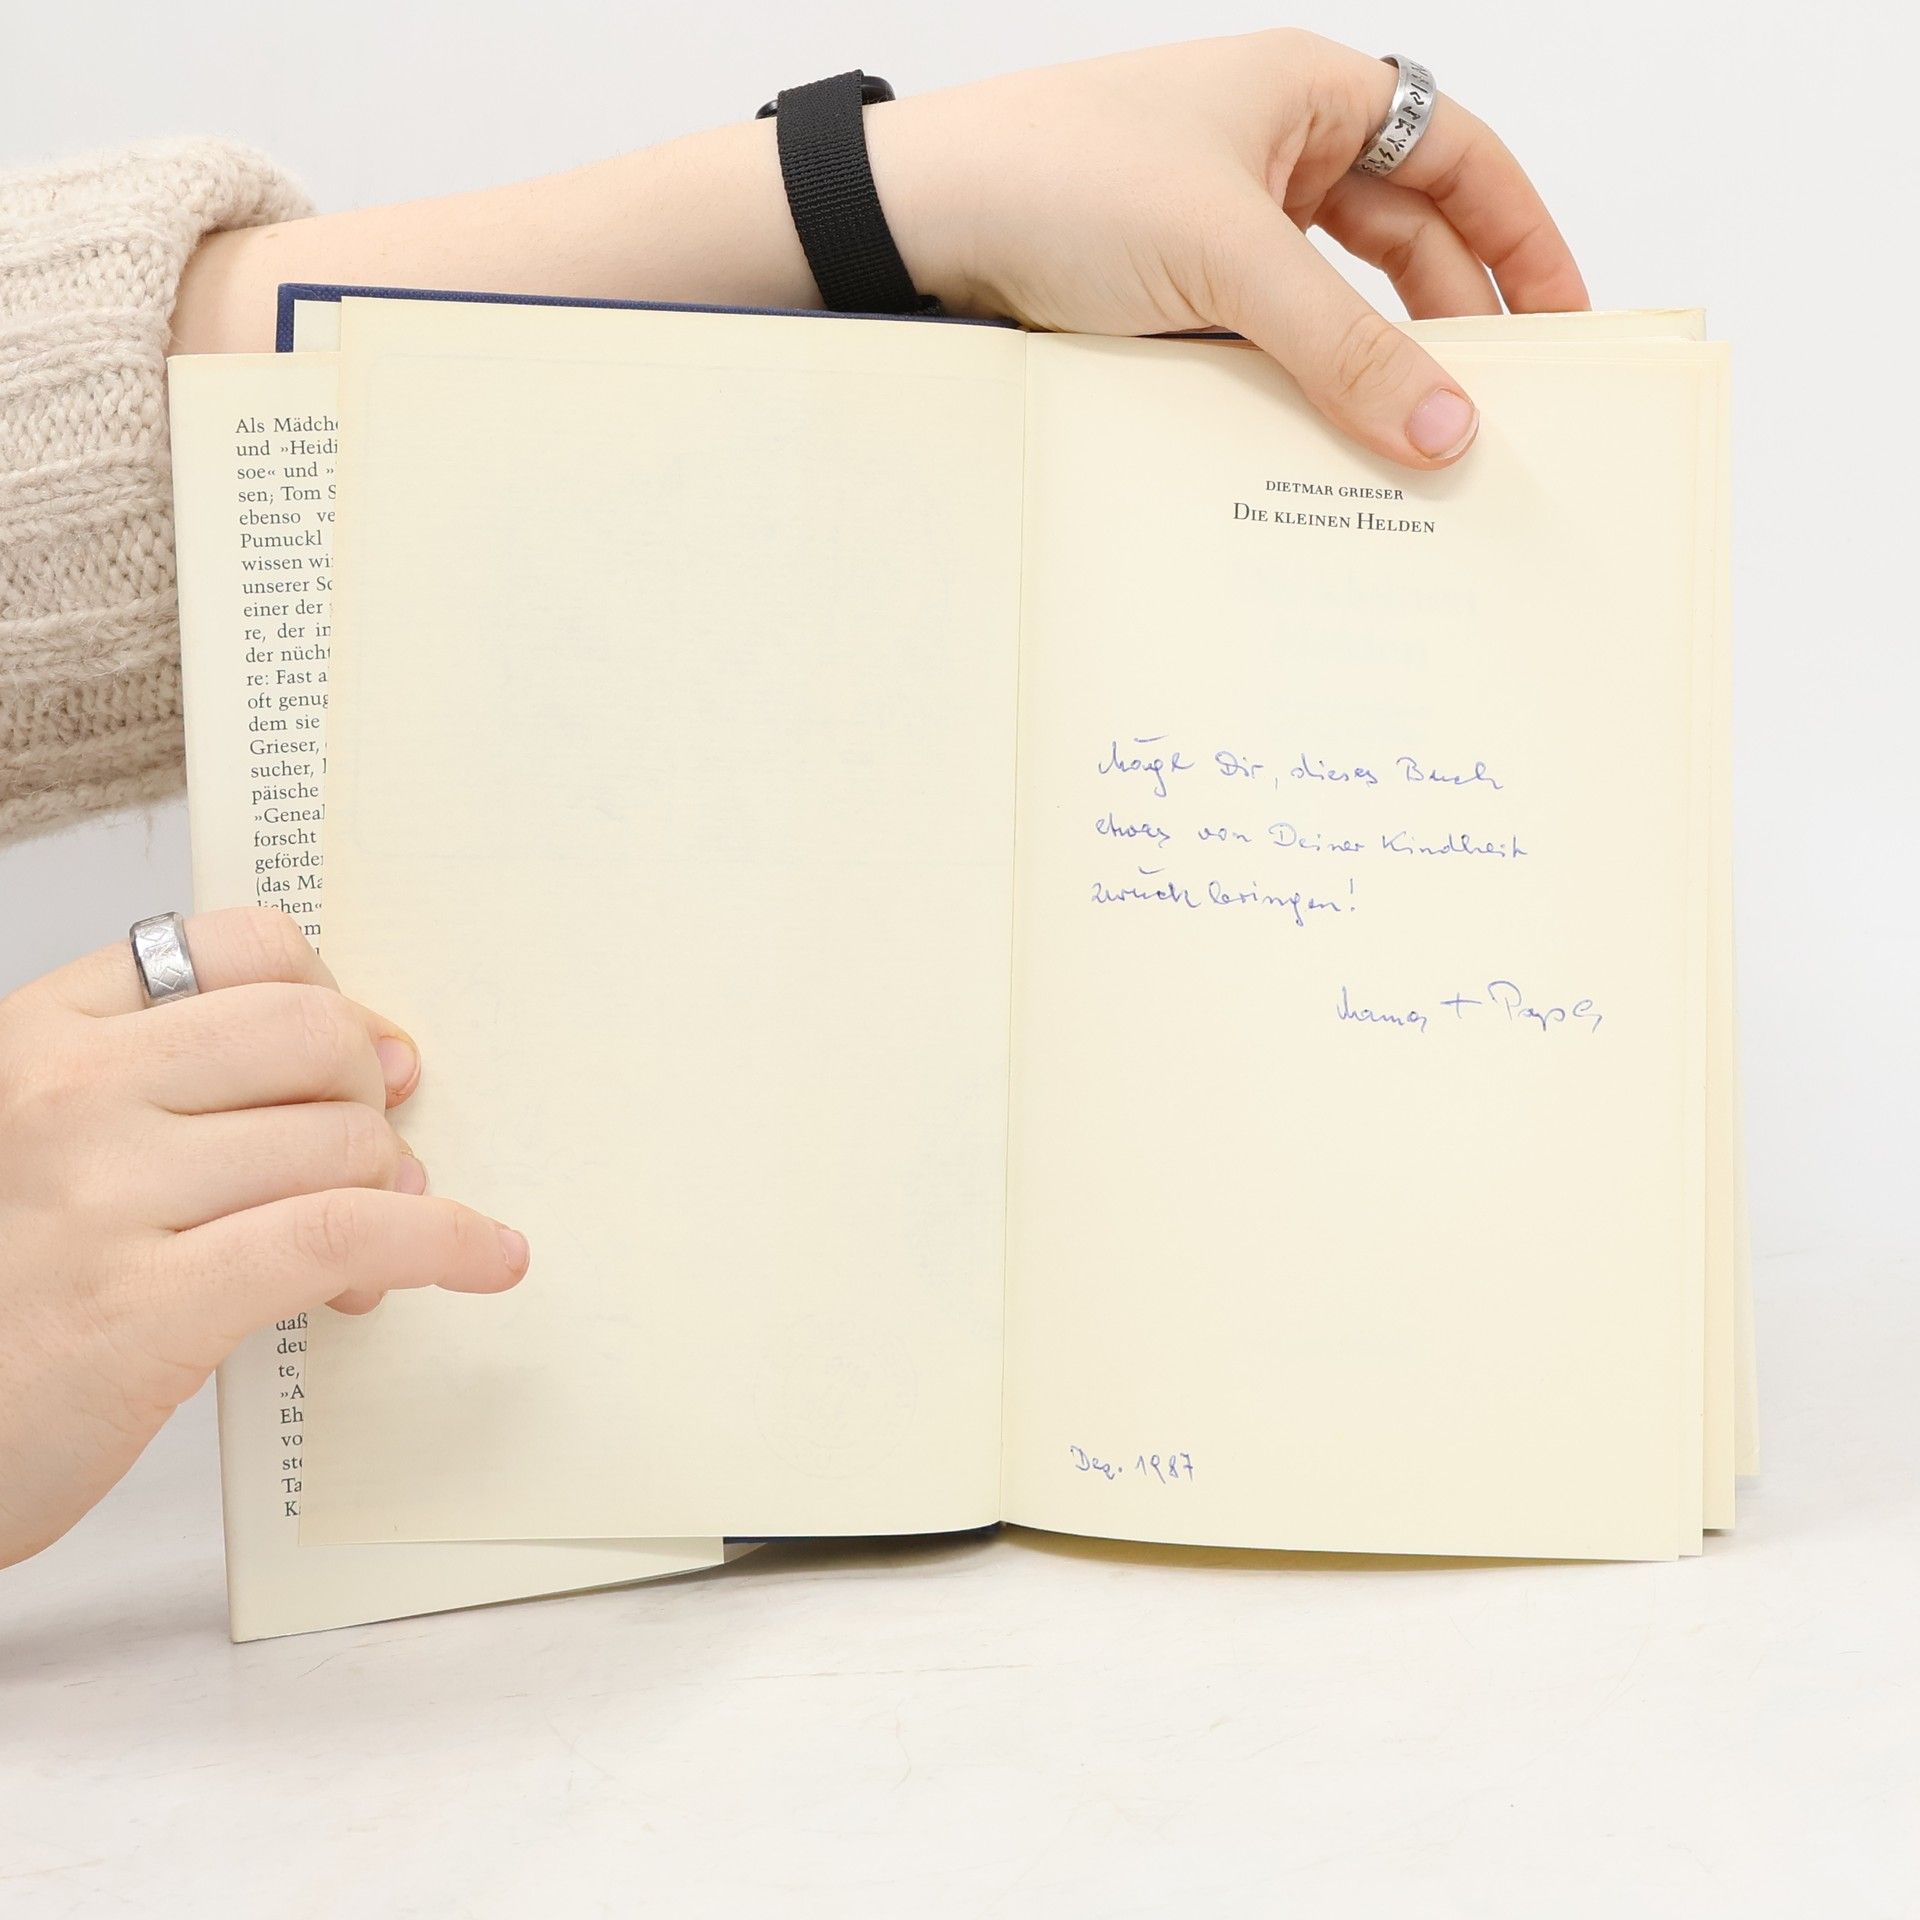 Als Mädche
und »Heidi
soe« und »
sen; Tom S
ebenso ve
Pumuckl
wissen wi
unserer Sc
einer der
re, der in
der nücht
re: Fast a
oft genug
dem sie
Grieser,
sucher,
päische
»Geneal
forscht
geförder
(das Ma
lichen«
daß
deu
te,
»A
Eh
vo
ste
Ta
K
DIETMAR GRIESER
DIE KLEINEN HELDEN
Möge Dir, dieses Buch
etwas von Deiner Kindheit
zurück bringen!
Mama + Papa
Dez. 1987